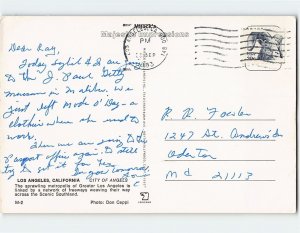 Majestic Impressions
PM
SEP
Dear Ray,
Today Sybil & I are going
to the "J. Paul Getty
museum in Malibu. We
just left Mode O' Day - a
clothier where she used to
work.
Then we are going to the
Passport office again to still
try to get it for her.
See you tomorrow,
R. R. Fowler
1247 St. Andrews Dr
Odenton
Md 21113
LOS ANGELES, CALIFORNIA CITY OF ANGELS
The sprawling metropolis of Greater Los Angeles is
linked by a network of freeways weaving their way
across the Scenic Southland.
M-2 Photo: Don Ceppi